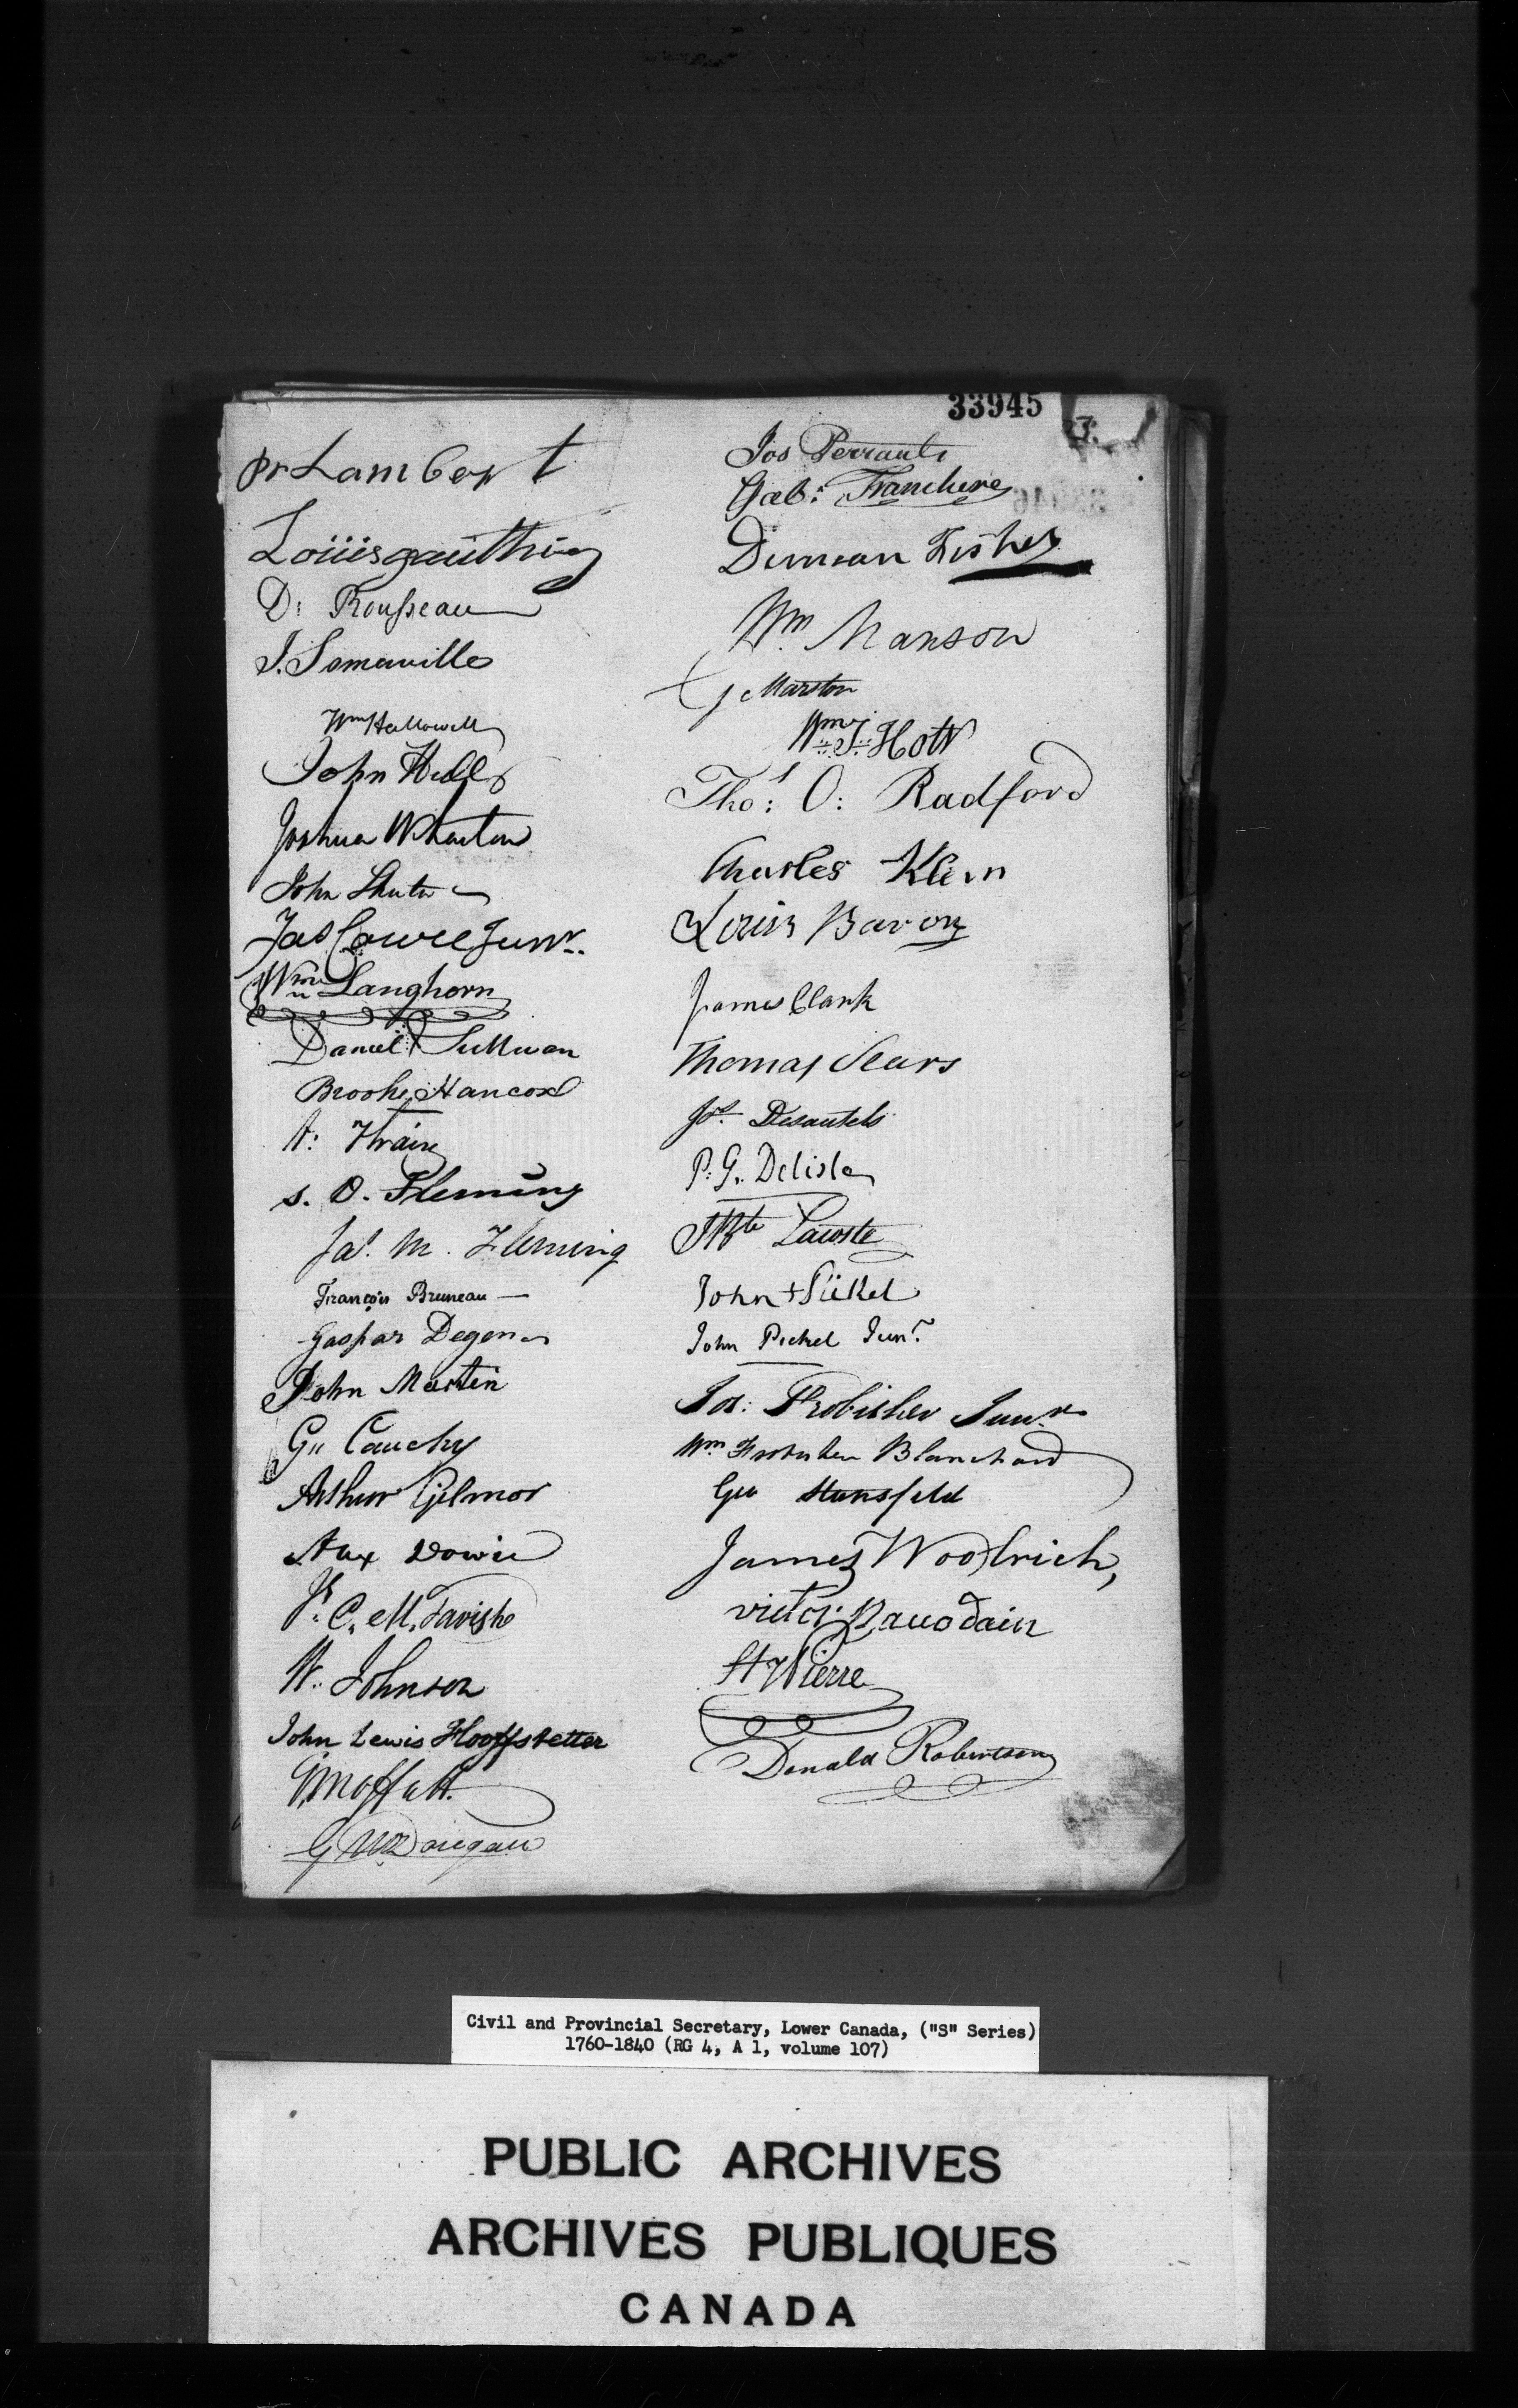 33945
pr Lambert
Loüisgauthier
D: Rousseau
J. Somerville
Wm Hallowell
John Hull
Joshua Wharton
John Shuter
Jas Cowie Junr.
Wm Langhorn
Daniel Sullivan
Brooke Hancox
A: Thain
S. O. Fleming
Jas. M. Fleming
François Bruneau
Gaspar Degen
John Martin
G. Cauchy
Arthur Gilmor
Alex Dowie
J. C. McTavish
W. Johnson
John Lewis Hooffstetter
G Moffatt
G McDougall
Jos Perrault
Gab: Franchere
Duncan Fisher
Wm. Manson
J Marston
Wm. J. Hott
Thos: O: Radford
Charles Klein
Louis Baron
James Clark
Thomas Sears
Js. Desautels
P. G. Delisle
J Bte Lacoste
John + Pükel
John Pickel Junr.
Jos: Frobisher Junr
Wm. Frobisher Blanchard
Geo Stansfeld
James Woolrich,
victor
St Pierre
Donald Robertson
Civil and Provincial Secretary, Lower Canada, ("S" Series)
1760-1840 (RG 4, A 1, volume 107)
PUBLIC ARCHIVES
ARCHIVES PUBLIQUES
CANADA